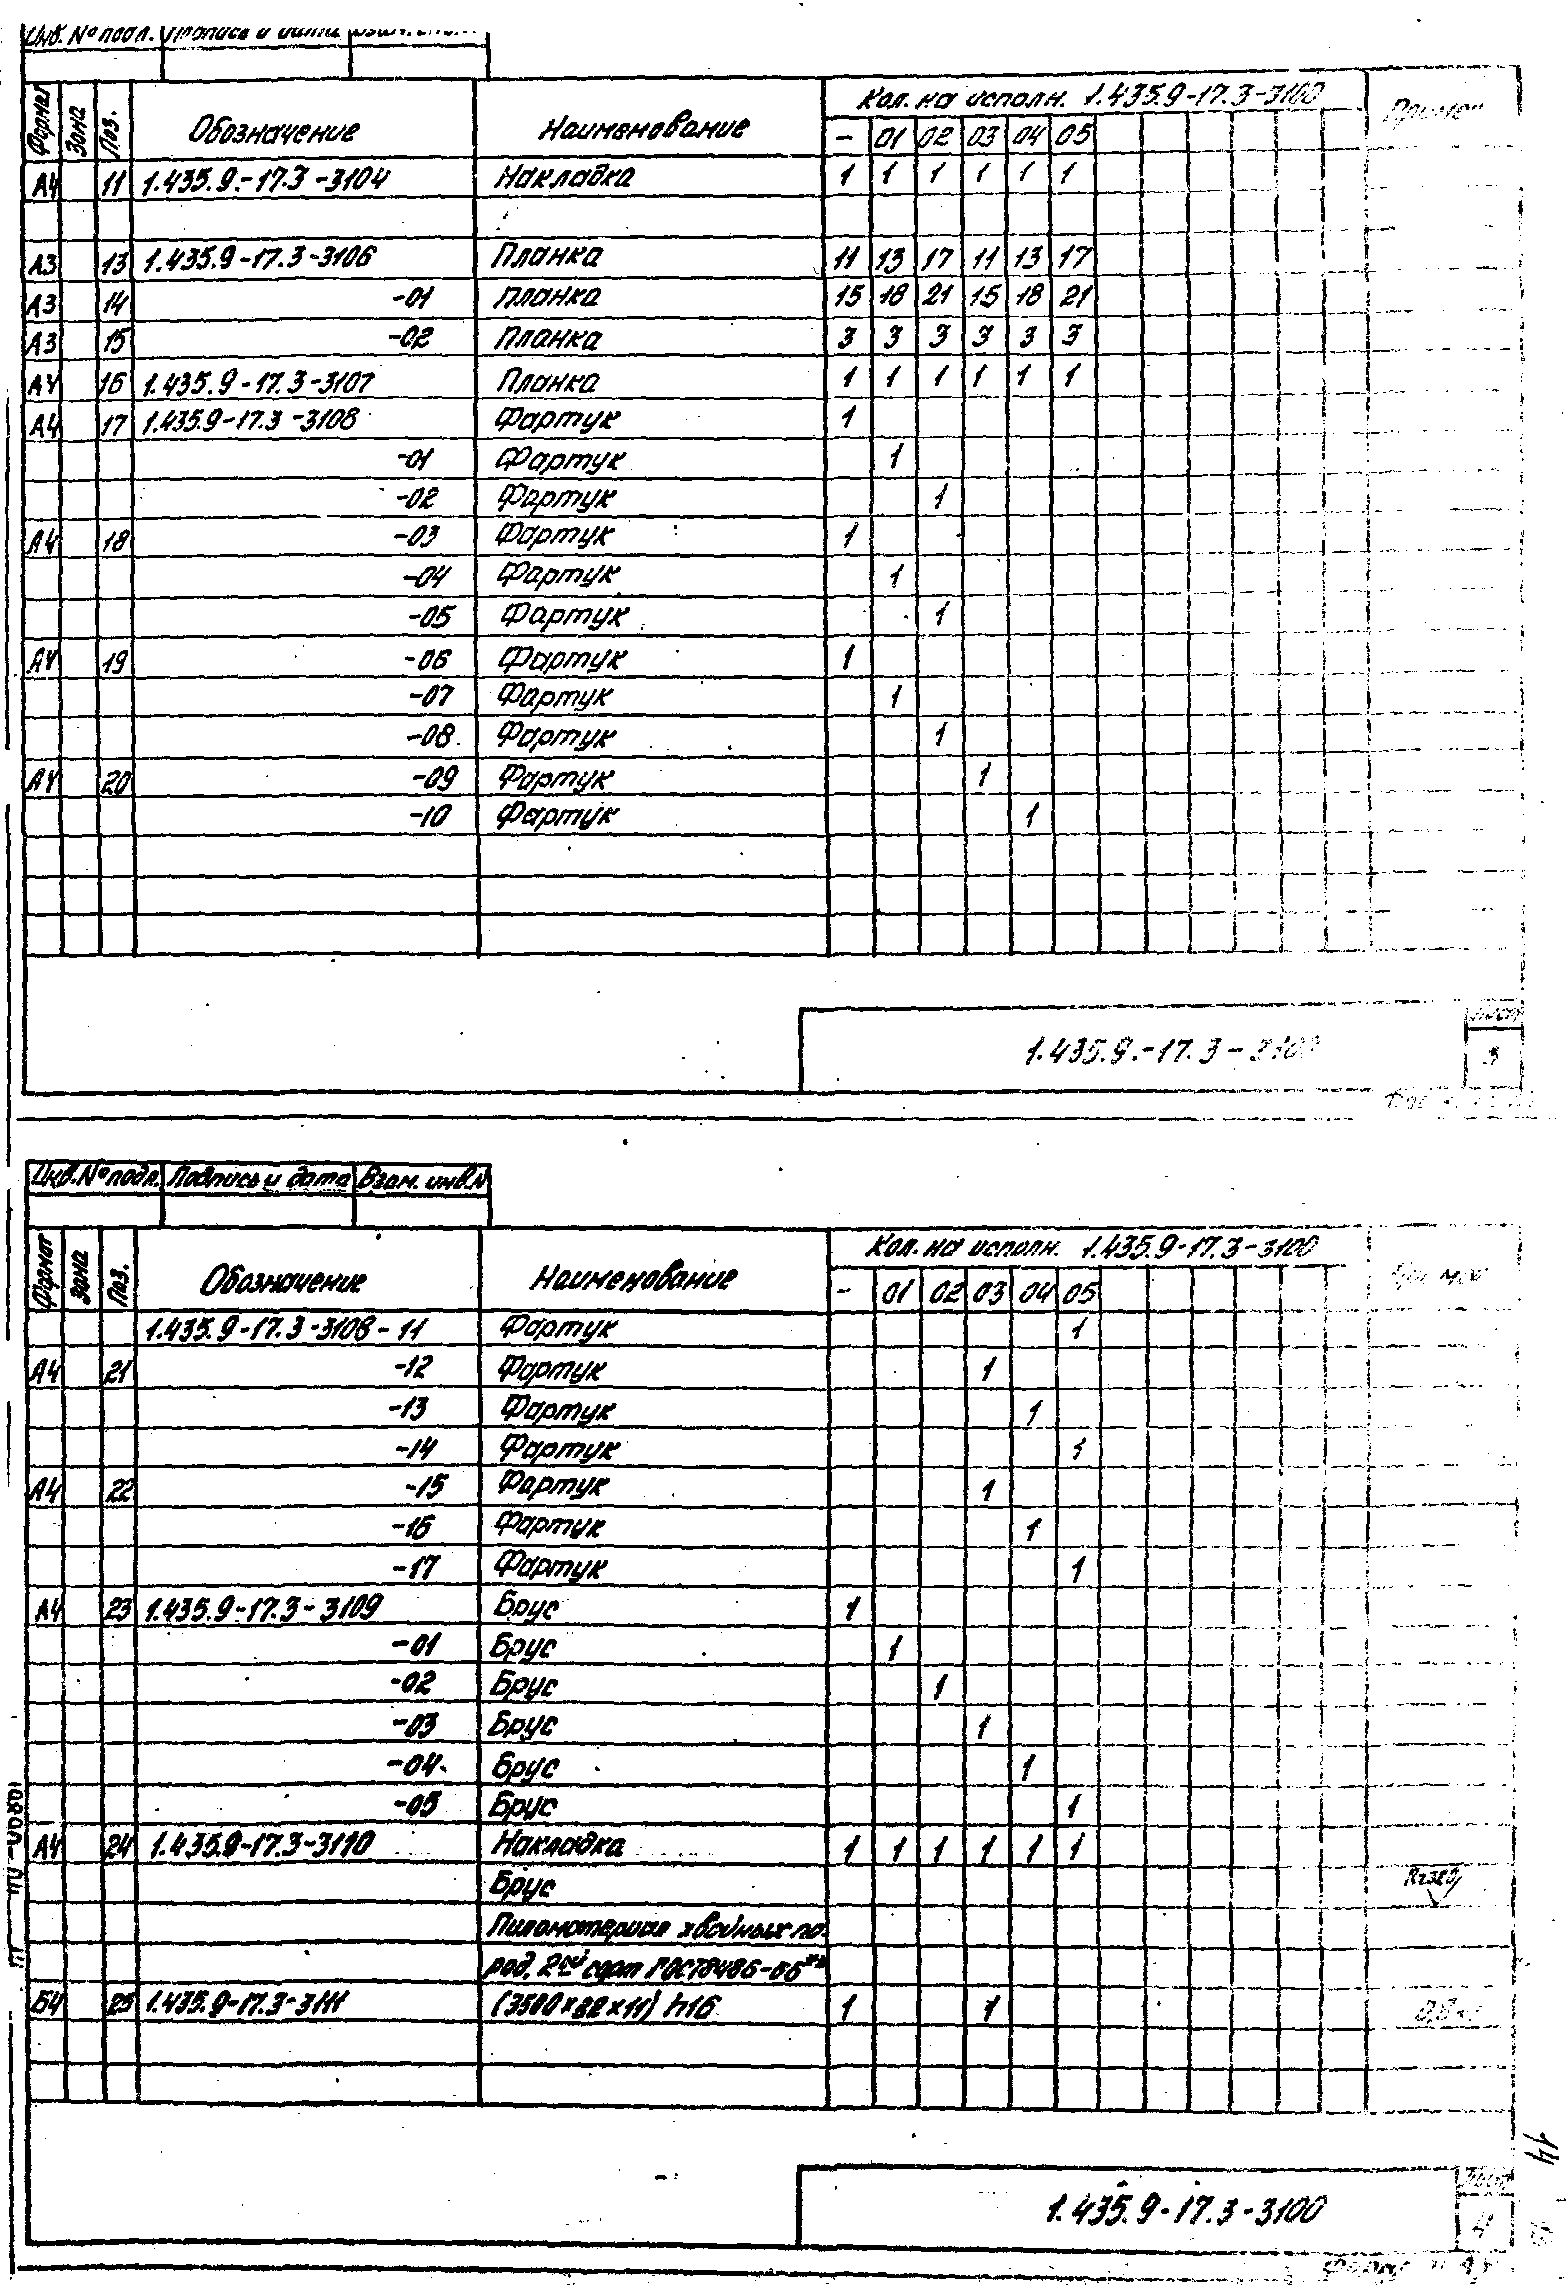 Инв. № подл. Подпись и дата
Формат Зона Поз. Обозначение Наименование Кол. на исполн. 1.435.9-17.3-3100 Примеч
- 01 02 03 04 05
А4 11 1.435.9-17.3-3104 Накладка 1 1 1 1 1 1
А3 13 1.435.9-17.3-3106 Планка 11 13 17 11 13 17
А3 14 -01 Планка 15 18 21 15 18 21
А3 15 -02 Планка 3 3 3 3 3 3
А4 16 1.435.9-17.3-3107 Планка 1 1 1 1 1 1
А4 17 1.435.9-17.3-3108 Фартук 1
-01 Фартук 1
-02 Фартук 1
А4 18 -03 Фартук 1
-04 Фартук 1
-05 Фартук 1
А4 19 -06 Фартук 1
-07 Фартук 1
-08 Фартук 1
А4 20 -09 Фартук 1
-10 Фартук 1
1.435.9.-17.3-3100
Лист
3
Инв. № подл. Подпись и дата Взам. инв. №
Формат Зона Поз. Обозначение Наименование Кол. на исполн. 1.435.9-17.3-3100
- 01 02 03 04 05
1.435.9-17.3-3108-11 Фартук 1
А4 21 -12 Фартук 1
-13 Фартук 1
-14 Фартук 1
А4 22 -15 Фартук 1
-16 Фартук 1
-17 Фартук 1
А4 23 1.435.9-17.3-3109 Брус 1
-01 Брус 1
-02 Брус 1
-03 Брус 1
-04 Брус 1
-05 Брус 1
А4 24 1.435.9-17.3-3110 Накладка 1 1 1 1 1 1
Брус Rz320
Пиломатериал хвойных по-
род, 2ый сорт ГОСТ8486-66**
Б4 25 1.435.9-17.3-3111 (3500×32×11) h16 1 1
1.435.9-17.3-3100
Лист
4
14